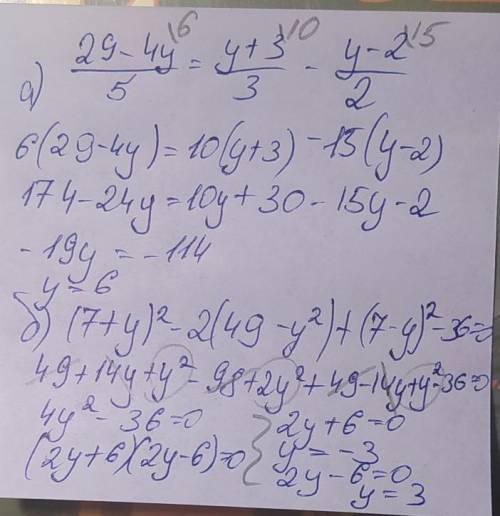 а) (29-4y)/5 \6 = (y+3)/3 \10 - (y-2)/2 \15
6(29-4y)=10(y+3)-15(y-2)
174-24y=10y+30-15y-2
-19y=-114
y=6
б) (7+y)²-2(49-y²)+(7-y)²-36=0
49+14y+y²-98+2y²+49-14y+y²-36=0
4y²-36=0
(2y+6)(2y-6)=0
2y+6=0
y=-3
2y-6=0
y=3